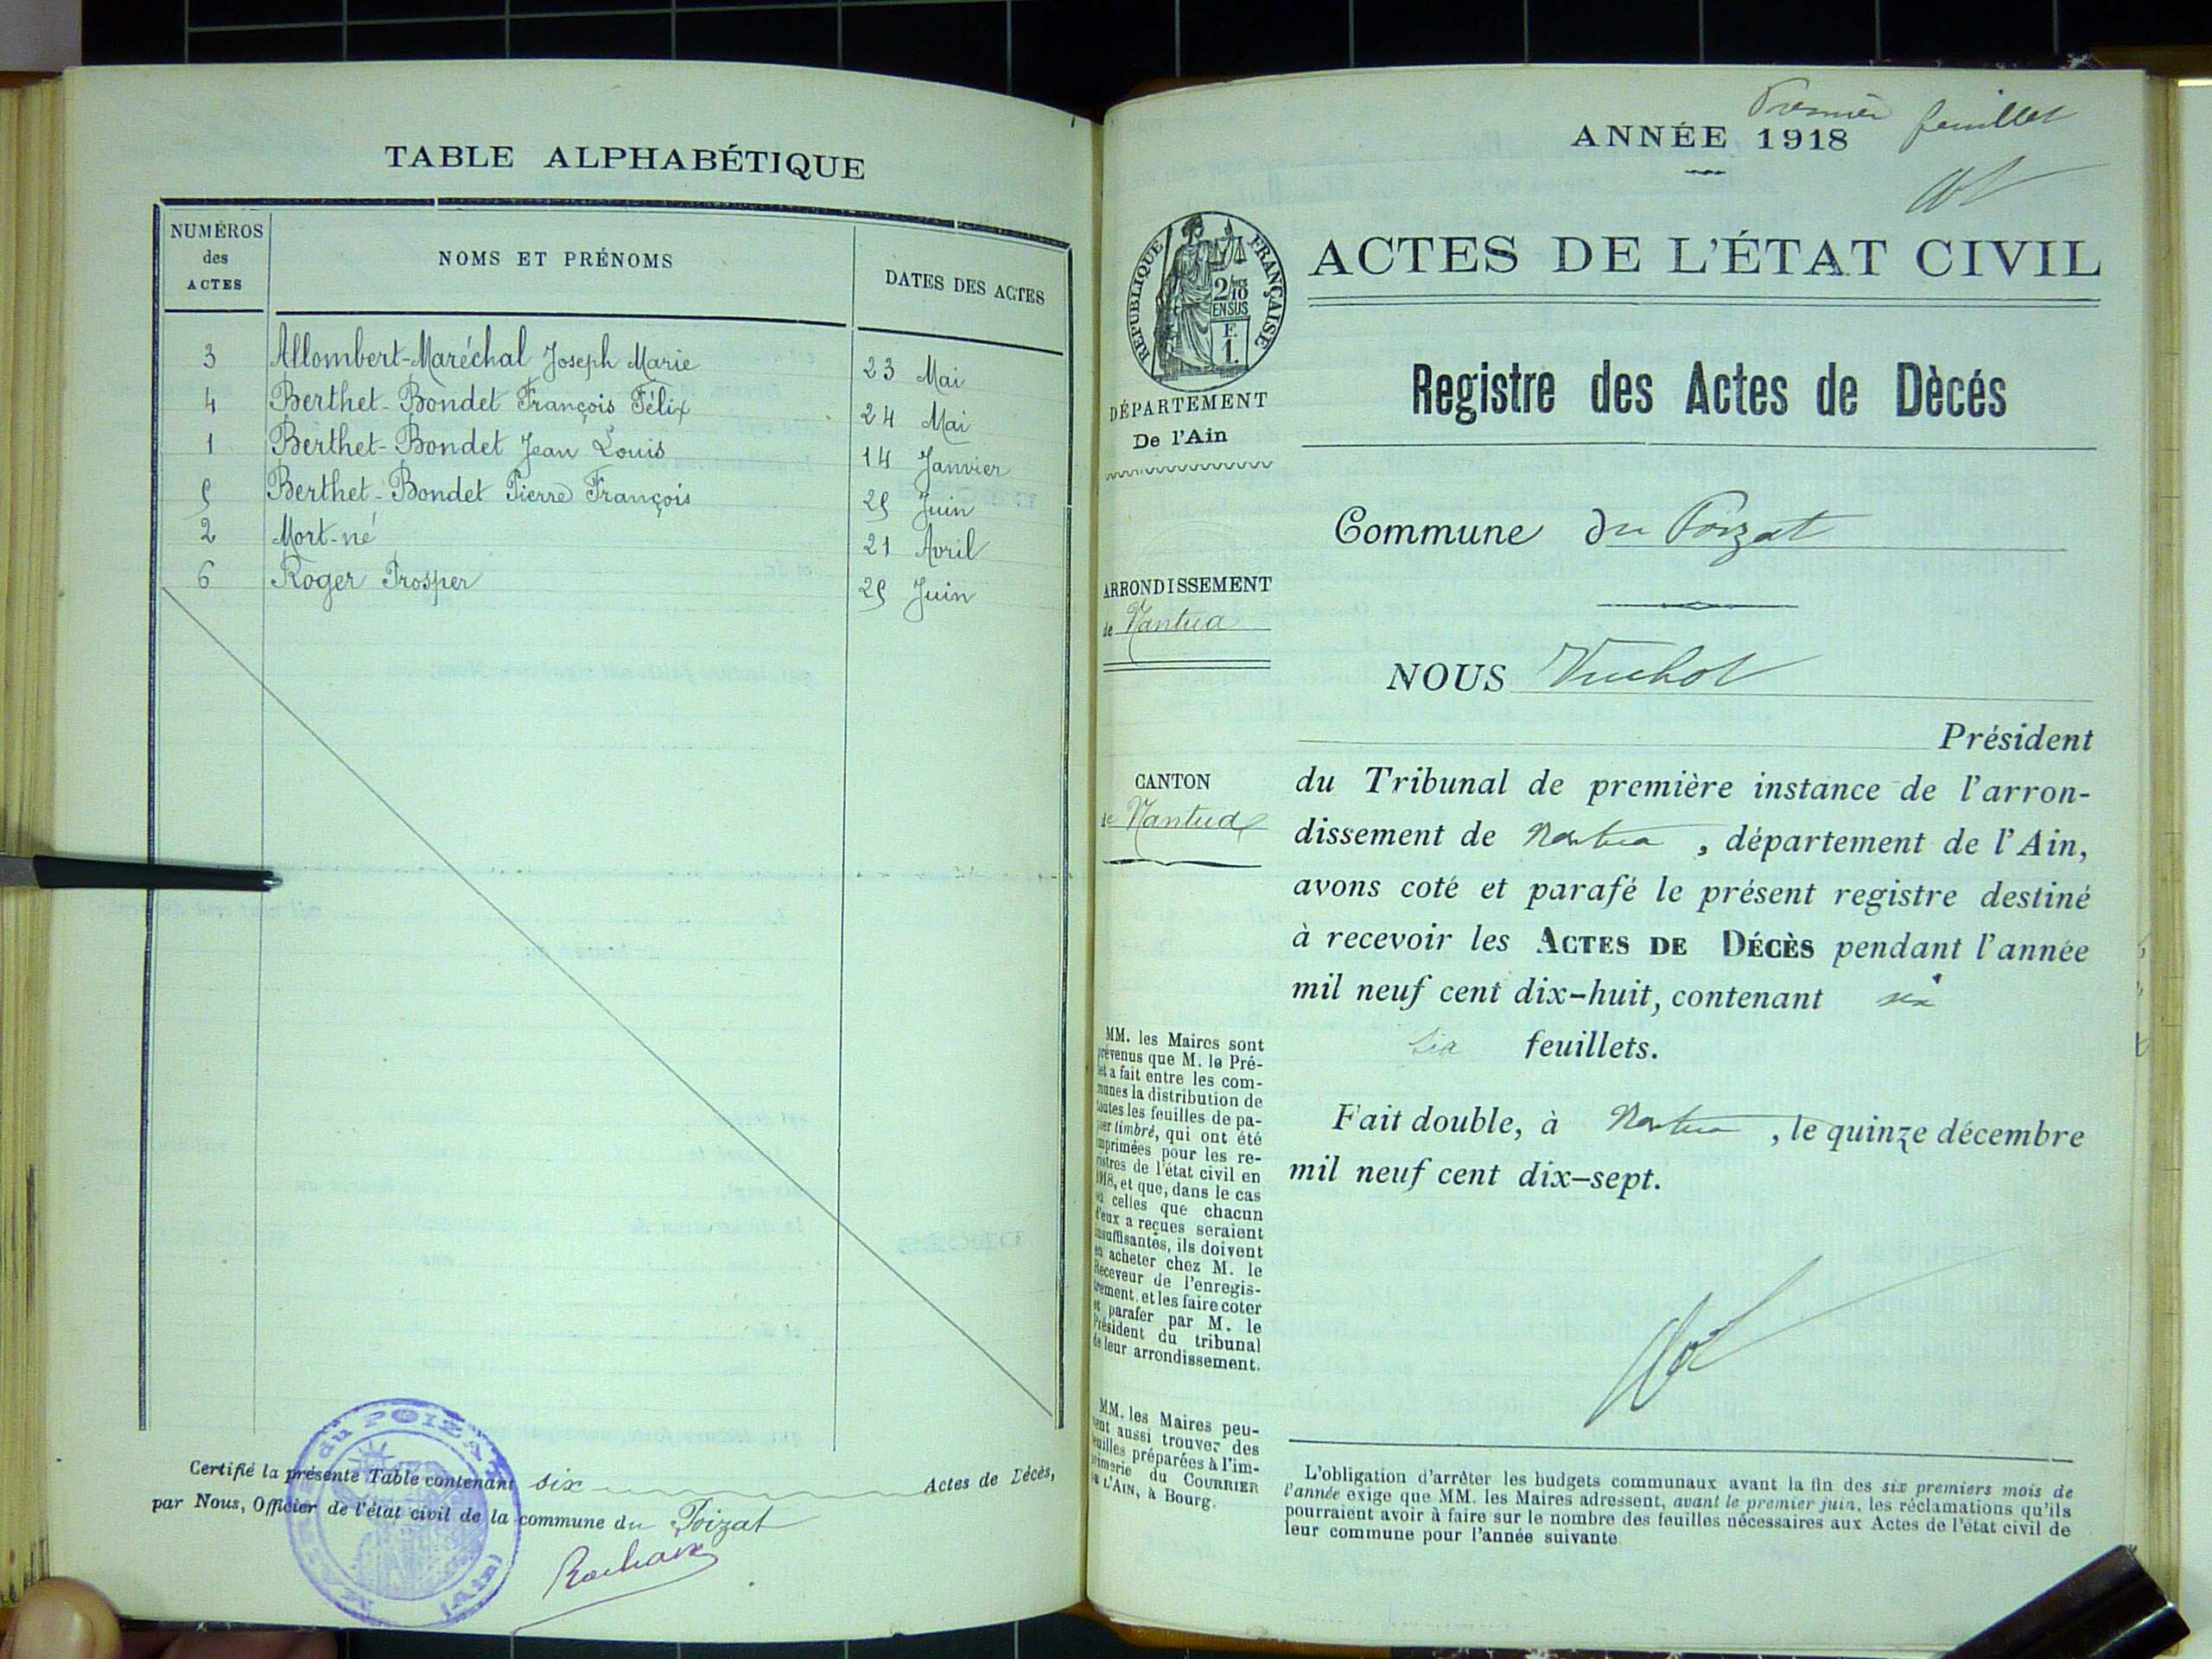 TABLE ALPHABÉTIQUE
NUMÉROS
des
ACTES
NOMS ET PRÉNOMS
DATES DES ACTES
3 Allombert-Maréchal Joseph Marie 23 Mai
4 Berthet-Bondet François Félix 24 Mai
1 Berthet-Bondet Jean Louis 14 Janvier
5 Berthet-Bondet Pierre François 25 Juin
2 Mort-né 21 Avril
6 Roger Prosper 25 Juin
Certifié la présente Table contenant six Actes de Décès,
par Nous, Officier de l'état civil de la commune du Poizat
du POIZAT
(Ain)
Premier feuillet
ANNÉE 1918
RÉPUBLIQUE FRANÇAISE
2/10
EN SUS
F.
1.
ACTES DE L'ÉTAT CIVIL
DÉPARTEMENT
De l'Ain
Registre des Actes de Dècés
Commune du Poizat
ARRONDISSEMENT
de Nantua
NOUS
Président
CANTON
de Nantua
du Tribunal de première instance de l'arron-
dissement de Nantua, département de l'Ain,
avons coté et parafé le présent registre destiné
à recevoir les ACTES DE DÉCÈS pendant l'année
mil neuf cent dix-huit, contenant six
feuillets.
Fait double, à Nantua, le quinze décembre
mil neuf cent dix-sept.
MM. les Maires sont
prévenus que M. le Pré-
fet a fait entre les com-
munes la distribution de
toutes les feuilles de pa-
pier timbré, qui ont été
imprimées pour les re-
gistres de l'état civil en
1918, et que, dans le cas
où celles que chacun
d'eux a reçues seraient
insuffisantes, ils doivent
en acheter chez M. le
Receveur de l'enregis-
trement, et les faire coter
et parafer par M. le
Président du tribunal
de leur arrondissement.
MM. les Maires peu-
vent aussi trouver des
feuilles préparées à l'im-
primerie du COURRIER
DE L'AIN, à Bourg.
L'obligation d'arrêter les budgets communaux avant la fin des six premiers mois de
l'année exige que MM. les Maires adressent, avant le premier juin, les réclamations qu'ils
pourraient avoir à faire sur le nombre des feuilles nécessaires aux Actes de l'état civil de
leur commune pour l'année suivante